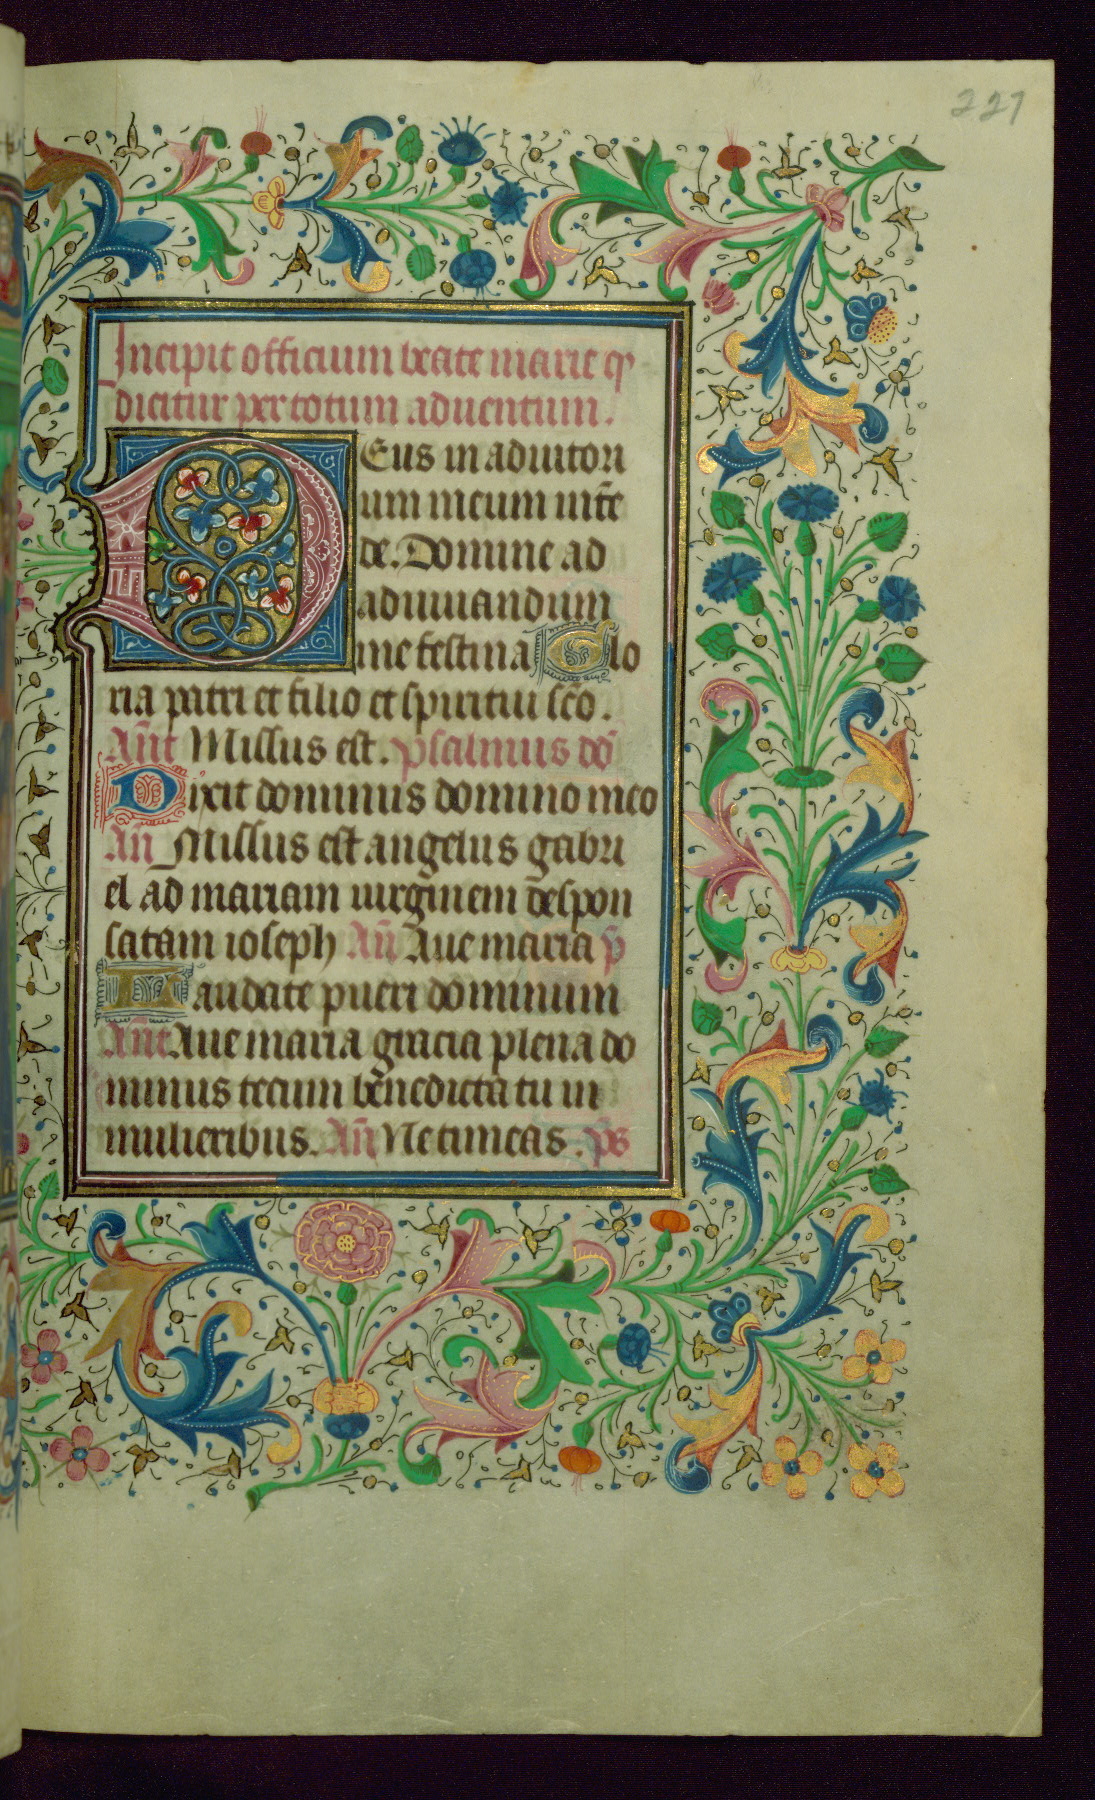 227
Incipit officium beate marie q̄
dicitur per totum aduentum.
Deus in adiutori
um meum intē
de. Domine ad
adiuuandum
me festina Glo
ria patri et filio et spiritui sc̄o.
An̄t Missus est. psalmus do
Dixit dominus domino meo
An̄ Missus est angelus gabri
el ad mariam uirginem despon
satam ioseph An̄ Aue maria p̄
Laudate pueri dominum
An̄t Aue maria gracia plena do
minus tecum benedicta tu in
mulieribus. An̄ Ne timeas. p̄s